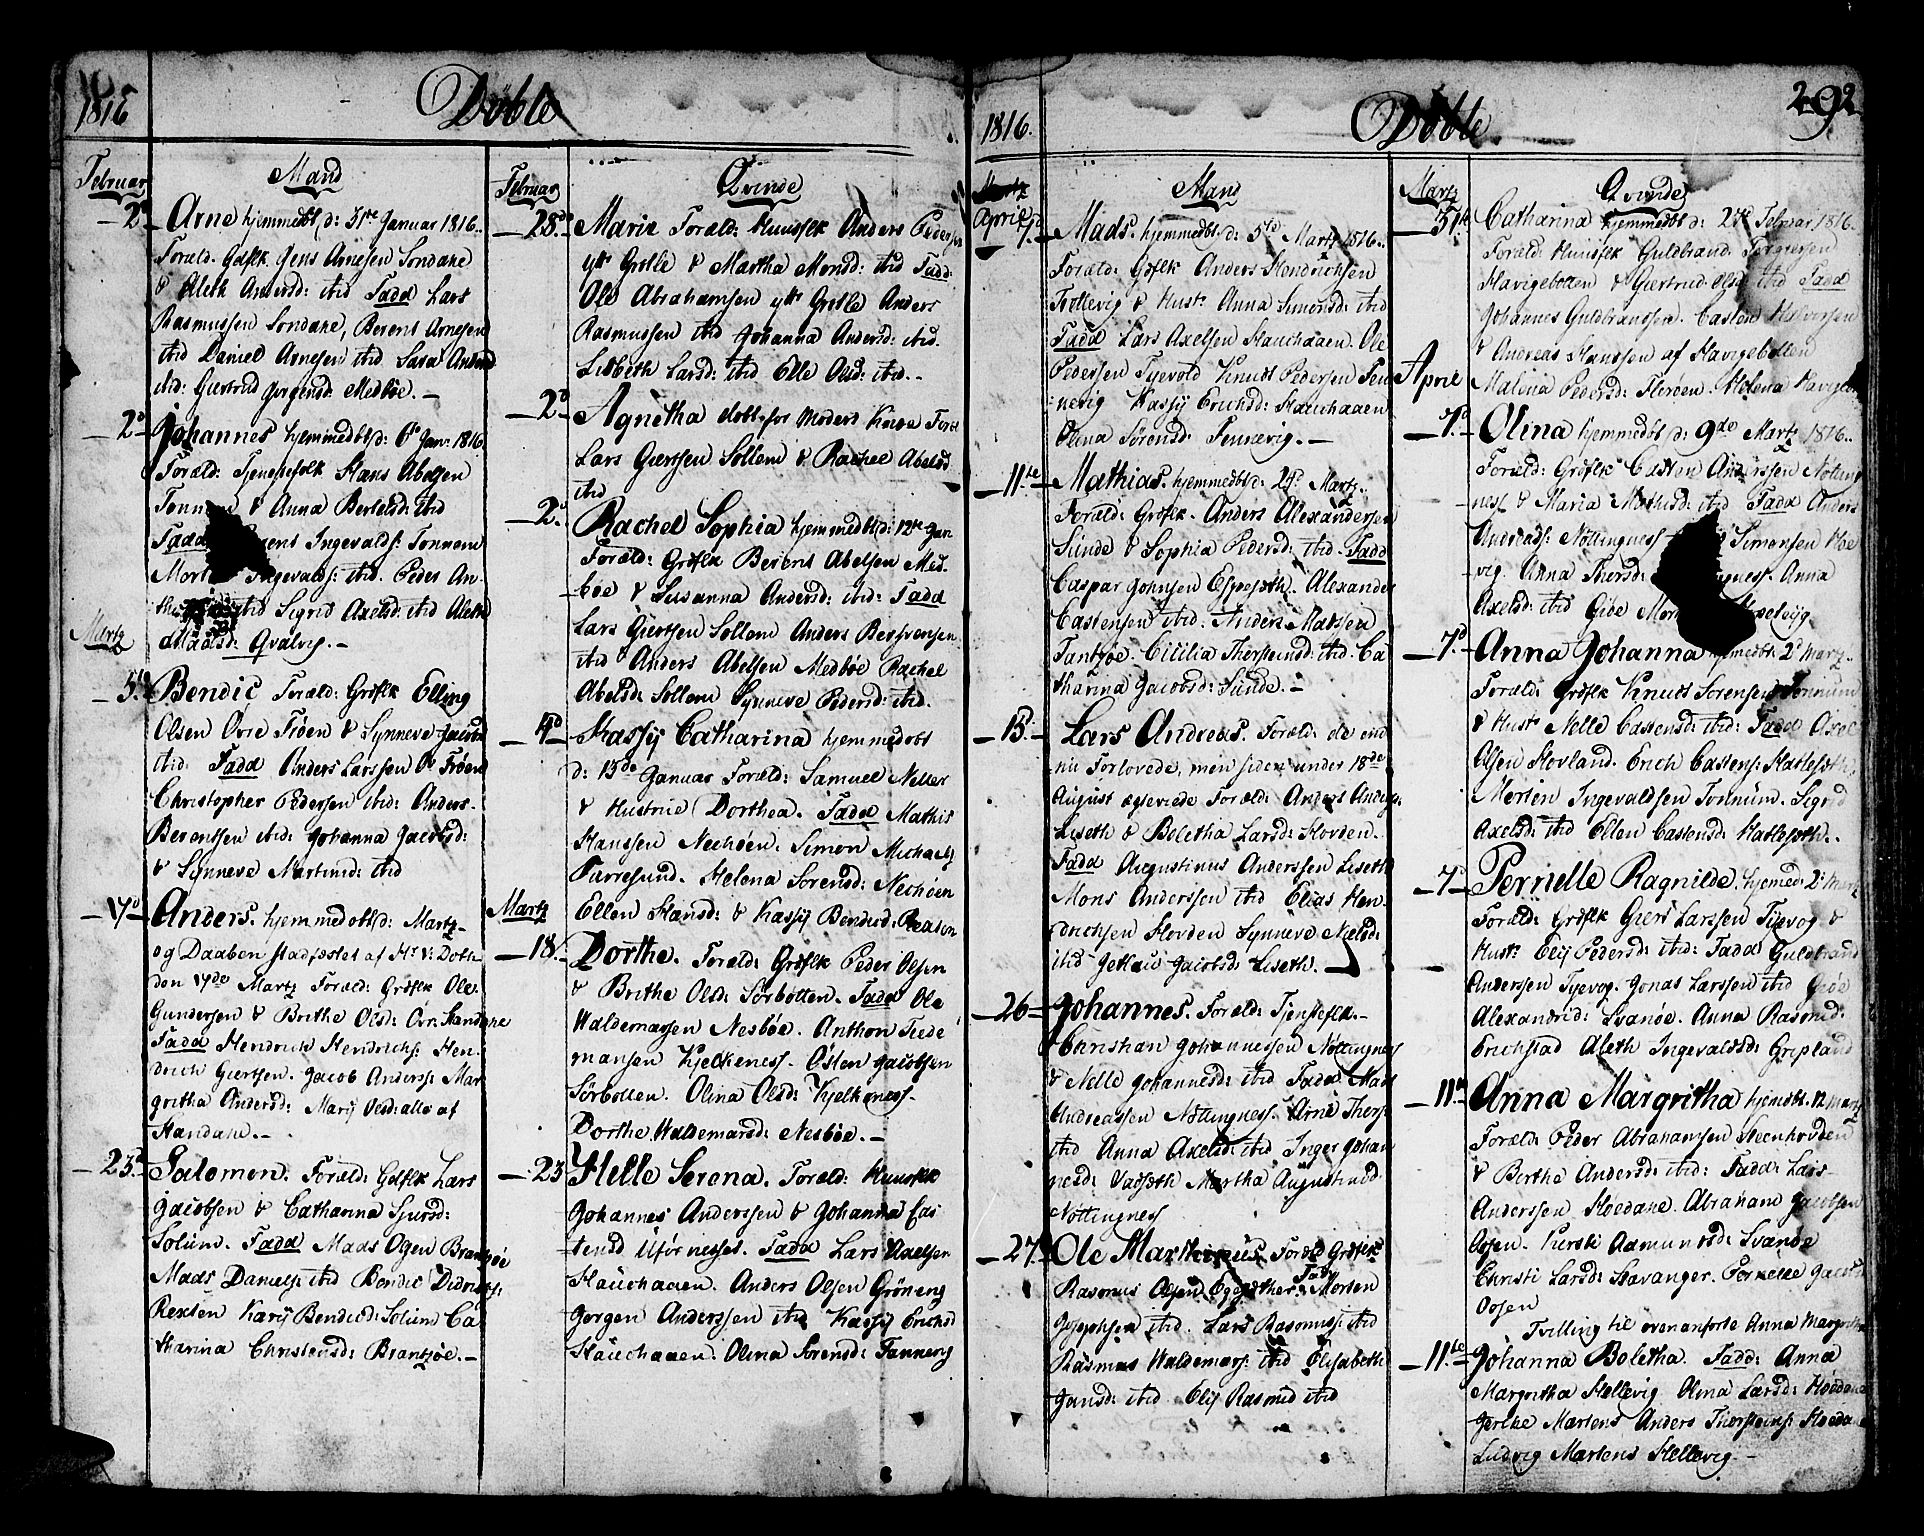 1816
Döbte
Februar
Mand
2d
Arne hjemmedbt d: 31te Januar 1816.
Foræld. Gdflk Jens Arnesen Sondane
& Aleth Andersd: ibid Fadd Lars
Rasmussen Sondane, Berent Arnesen
ibid Daniel Arnesen ibid Sara Andersd
ibid: Giertrud Jörgensd: Medböe.
2d
Johannes hjemmedbt d: 6te Janv. 1816
Foræld: Tjenestfolk Hans Abelsen
& Anna Bertelsd: ibid
Fadd Ingevalds: Tonnem
Ingevalds: ibid. Peder An-
ibid Sigrid Axelsd: ibid Aleth
Madsd: Qvalvig.
Martz
3d
Bendic Foræld: Grdflk Elling
Olsen Övre Fröen & Synneve Jacobsd
ibid. Fadd Anders Larssen Ö. Fröen
Christopher Pedersen ibid: Anders
Berentsen ibid: Johanna Jacobsd:
& Synneve Martinusd: ibid
17d
Anders. hjemmedobt d: Martz
og Daaben stadfæstet af Hr. V: Doth
den 17de Martz Foræld: Grdflk Ole
Gundersen & Brithe Olsd: Övr: Standane
Fadd Hendrich Hendrichs: Hen-
drich Giertsen. Jacob Anders: Mar
gritha Andersd: Marij Olsd: alle af
Standane.
23d
Salomon. Foræld: Gdflk Lars
Jacobsen & Catharina Sjursd:
Solum. Fadd Mads Olsen Brandsöe
Mads Daniels: ibid Bendic Didrichs:
Rexten Karij Bendicsd: Solum Ca
tharina Christensd: Brantzöe.
Februar
Qvinde
25d
Marie Foræld: Huusflk Anders Peders
ytt Grölle & Martha Monsd: ibid Fadd:
Ole Abrahamsen ytt Grölle Anders
Rasmussen ibid Johanna Andersd: ibid.
Lisbeth Larsd: ibid Elle Olsd: ibid.
2d
Agnetha dobt for Moders Kone Foræl
Lars Giertsen Sollem & Rachel Abelsd
ibid
2d
Rachel Sophia hjemmedbt d: 12te Jan
Foræld: Grdflk Berent Abelsen Med-
böe & Susanna Andersd: ibid: Fadd
Lars Giertsen Sollem Anders Berentsen
ibid Anders Abelsen Medböe Rachel
Abelsd: Sollem Synneve Pedersd: ibid.
4d
Kassij Catharina hjemmedobt
d: 15de Januar Foræld: Samuel Neller
& Hustrue Dorthea. Fadd Mathis
Hanssen Nechöen. Simon Michaels
Færresund. Helena Sorensd: Nechöen
Ellen Hansd: & Kassij Bendicsd: Rexten
Martz
18
Dorthe. Foræld: Grdflk Peder Olsen
& Brithe Olsd: Sörbotten. Fadd Ole
Waldemarsen Nesböe. Anthon Tiede
mansen Kjelkeness. Östen Jacobsen
Sörbotten. Olina Olsd: Kjelkeness.
Dorthe Waldemarsd: Nesböe.
23
Helle Serena. Foræld: Huusflk
Johannes Anderssen & Johanna Cas
tensd Uförnesset. Fadd Lars Axelsen
Stauchaaen. Anders Olsen Gröneng
Jorgen Anderssen ibid Kassij Erichsd
Stauchaaen. Olina Sorensd: Tanneng
1816.
Döbte
292
Martz
April
Mand
7d
Mads. hjemmedbt d: 5te Martz 1816.
Foræld: Gdflk Anders Hendrichsen
Trollevig & Hust: Anna Simonsd: ibid
Fadd Lars Axelsen Stauchaaen. Ole
Pedersen Tyevold Knud Pedersen Fen
nevig Kassij Erichsd: Stauchaaen
Olina Sörensd: Fennevig.
11te
Mathias. hjemmedbt d: 29d Martz.
Foræld: Grdflk. Anders Alexandersen
Sunde & Sophia Pedersd: ibid. Fadd
Caspar Johnsen Espesæth. Alexander
Castensen ibid. Anders Matsen
Fantzöe. Cicilia Thorsteinsd: ibid. Ca
tharina Jacobsd: Sunde.
15d
Lars Andreas. Foræld: de end
nu Forlovede, men siden under 18de
August ægteviede Foræld: Anders Anders:
Liseth & Boletha Larsd: Hovden.
Fadd Augustinus Anderssen Liseth
Mons Anderssen ibid Elias Hen-
drichsen Hovden Synneve Nielsd:
ibid Jacobsd: Liseth.
26
Johannes. Foræld: Tjenstefk.
Christian Johannessen Nöttingness
& Nelle Johannesd: ibid Fadd Mads
Andreassen Nöttingness. Arne Thors:
ibid Anna Axelsd: ibid Inger Johan
nesd: Vadseth Martha Augustinusd
Nöttingness
27d
Ole Marthinus Foræld Grdflk
Rasmus Olsen Egesæther. Fadd Morten
Josephsen ibid. Lars Rasmuss: ibid
Rasmus Waldemars: ibid Elisabeth
Jansd: ibid Elij Rasmusd ibid
Martz
Qvinde
31te
Catharina hjemmedbt d: 27d Februar 1816.
Foræld: Huusflk Guldbrand Torgersen
Havigebotten & Giertrud Olsd ibid Fadd
Johannes Guldbrandsen. Casten Halvorsen
& Andreas Hanssen af Havigebotten
Malina Pedersd: Floröen. Helena Havigeb
April
7d
Olina hjemmedbt d: 9de Martz 1816.
Foræld: Grdflk Casten Anderssen Nötting
ness & Maria Mathisd: ibid Fadd Anders
Andreads: Nöttingness Simonsen Hoe
vig. Anna Thorsd: Anna
Axelsd: ibid Giöe
7d
Anna Johanna hjemmedbt: 2d Martz.
Foræld: Grdflk Knud Sorensen Tonnum
& Hust: Nelle Castensd: ibid: Fadd Axel
Olsen Hovland. Erich Castens: Hatlesæth.
Morten Ingevaldsen Tonnum. Sigrid
Axelsd: ibid Ellen Castensd: Hatlesoth.
7d
Pernelle Ragnilde. hjemed: 2d Mart
Foræld: Grdflk Giert Larssen Tyevog &
Hust: Elij Pedersd: ibid: Fadd Guldbrand
Anderssen Tyevog. Jonas Larssen ibid Giöe
Alexandersd: Svanöe. Anna Rasmusd:
Erichstad Aleth Ingevaldsd: Gripland
11te
Anna Margritha hjemdbt. 12 Martz
Foræld: Peder Abrahamsen Steenhovden
& Berthe Andersd: ibid: Fadd: Lars
Anderssen Hoedane. Abraham Jacobsen
Ossen. Kirsti Aamundsd: Svande
Christi Larsd: Stavanger. Pernelle Jacobsd
Ossen
Tvilling til ovenanforte Anna Margritha
11te
Johanna Boletha. Fadd: Anna
Margritha Hellevig Olina Larsd: Hoedane
Gerthe Martens Anders Thorsteins: Hoedane
Ludvig Martens Hellevig.